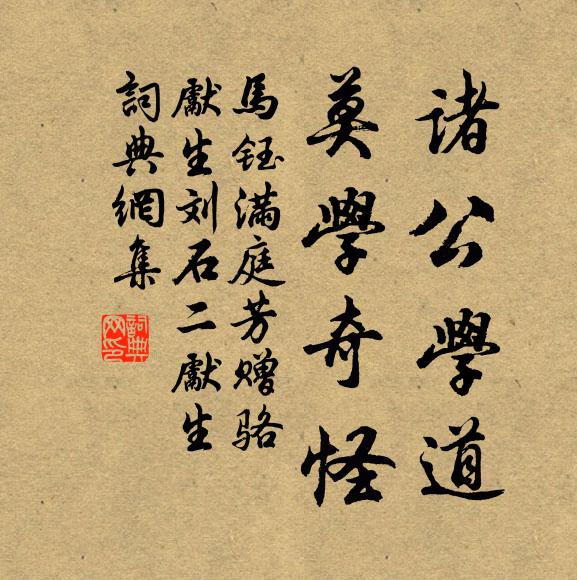 诸公學道
莫學奇怪
馬钰满庭芳赠骆
獻生刘石二獻生
詞典網集
詞典网印